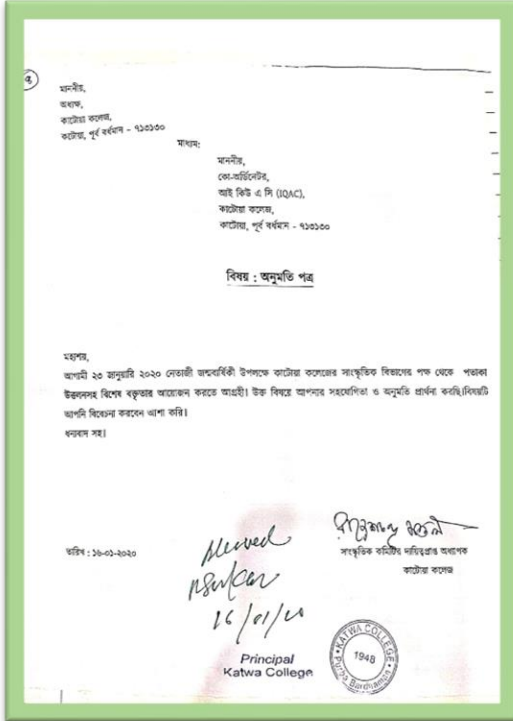 মাননীয়,
অধ্যক্ষ,
কাটোয়া কলেজ,
কটোয়া, পূর্ব বর্ধমান - ৭১৩১৩০
মাধ্যম:
মাননীয়,
কো-অর্ডিনেটর,
আই কিউ এ সি (IQAC),
কাটোয়া কলেজ,
কাটোয়া, পূর্ব বর্ধমান - ৭১৩১৩০
বিষয় : অনুমতি পত্র
মহাশয়,
আগামী ২৩ জানুয়ারি ২০২০ নেতাজী জন্মবার্ষিকী উপলক্ষে কাটোয়া কলেজের সাংস্কৃতিক বিভাগের পক্ষ থেকে পতাকা
উত্তলনসহ বিশেষ বক্তৃতার আয়োজন করতে আগ্রহী। উক্ত বিষয়ে আপনার সহযোগিতা ও অনুমতি প্রার্থনা করছি।বিষয়টি
আপনি বিবেচনা করবেন আশা করি।
ধন্যবাদ সহ।
তারিখ : ১৬-০১-২০২০
সাংস্কৃতিক কমিটির দায়িত্বপ্রাপ্ত অধ্যাপক
কাটোয়া কলেজ
Allowed
16/01/20
Principal
Katwa College
KATWA COLLEGE
1948
Purba Bardhaman